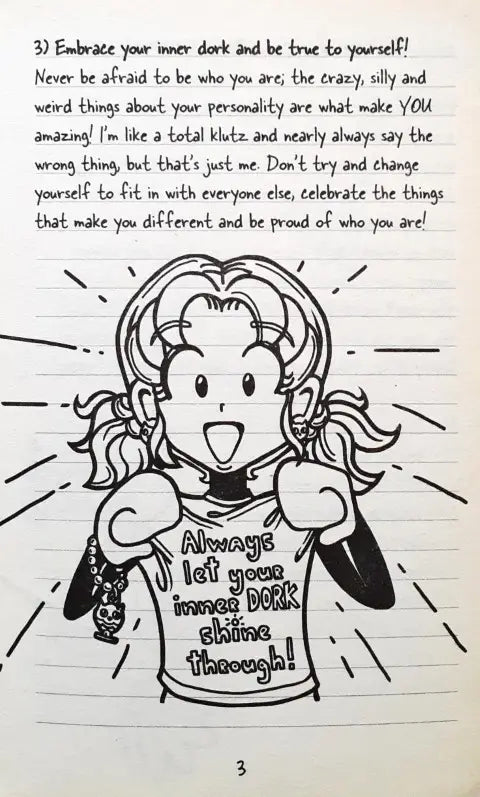 3) Embrace your inner dork and be true to yourself!
Never be afraid to be who you are; the crazy, silly and
weird things about your personality are what make YOU
amazing! I'm like a total klutz and nearly always say the
wrong thing, but that's just me. Don't try and change
yourself to fit in with everyone else, celebrate the things
that make you different and be proud of who you are!
Always
let your
inner DORK
shine
through!
3